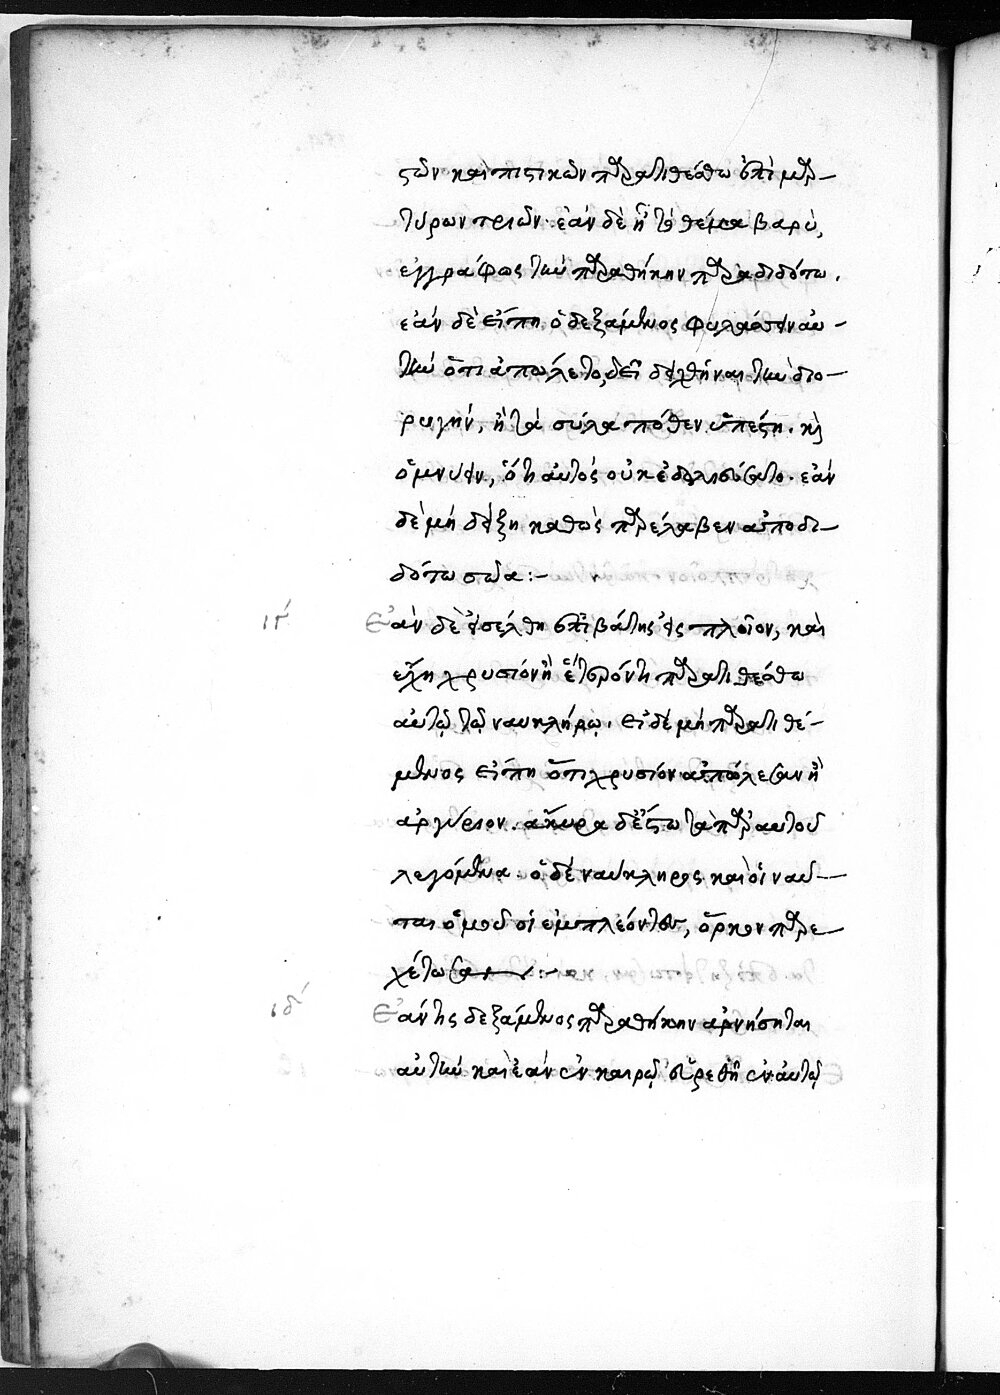 στῶν καὶ πιστικῶν παρατιθέσθω ἐπὶ μαρ-
τύρων τριῶν· ἐὰν δὲ ἦ τὸ θέμα βαρὺ,
ἐγγράφως τὴν παραθήκην παραδιδότω.
ἐὰν δὲ εἴπη ὁ δεξάμενος φυλάσσειν αὐ-
τὴν ὅτι ἀπώλετο, δεῖ δειχθῆναι τὴν διο-
ρυγήν, ἢ τὰ σύλα πόθεν ὕπεστη. κὶ
ὀμνυειν, ὅτι αὐτὸς οὐκ ἐδολιεύσατο. ἐὰν
δὲ μὴ δείξη καθὼς παρέλαβεν ἀποδι-
δότω σῶα:-
ιγ Ἐὰν δὲ εἰσέλθη ἐπιβάτης εἰς πλοῖον, καὶ
ἔχη χρυσίον ἢ ἕτερόν τι παρατιθέσθω
αὐτῷ τῷ ναυκλήρῳ. εἰ δὲ μὴ παρατιθέ-
μενος εἴπη ὅτι χρυσίον ἀπώλεσαν ἢ
ἀργύριον. ἄκυρα δὲ ἔστω τὰ παρ' αὐτοῦ
λεγόμενα. ὁ δὲ ναύκληρος καὶ οἱ ναῦ-
ται ὁμοῦ οἱ ἐμπλέοντες, ὅρκον παρε-
χέτωσαν:-
ιδ Ἐάν τις δεξάμενος παραθήκην ἀρνήσηται
αὐτὴν καὶ ἐὰν ἐν καιρῷ εὑρεθῆ ἐν αὐτῷ